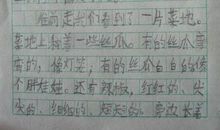 在前走我们看到了一片菜地。
菜地上种着一些丝瓜。有的丝瓜弯
弯的，像灯笼；有的丝瓜白白的像
个胖娃娃。还有辣椒，红红的、尖
尖的、细细的、短短的。旁边长着